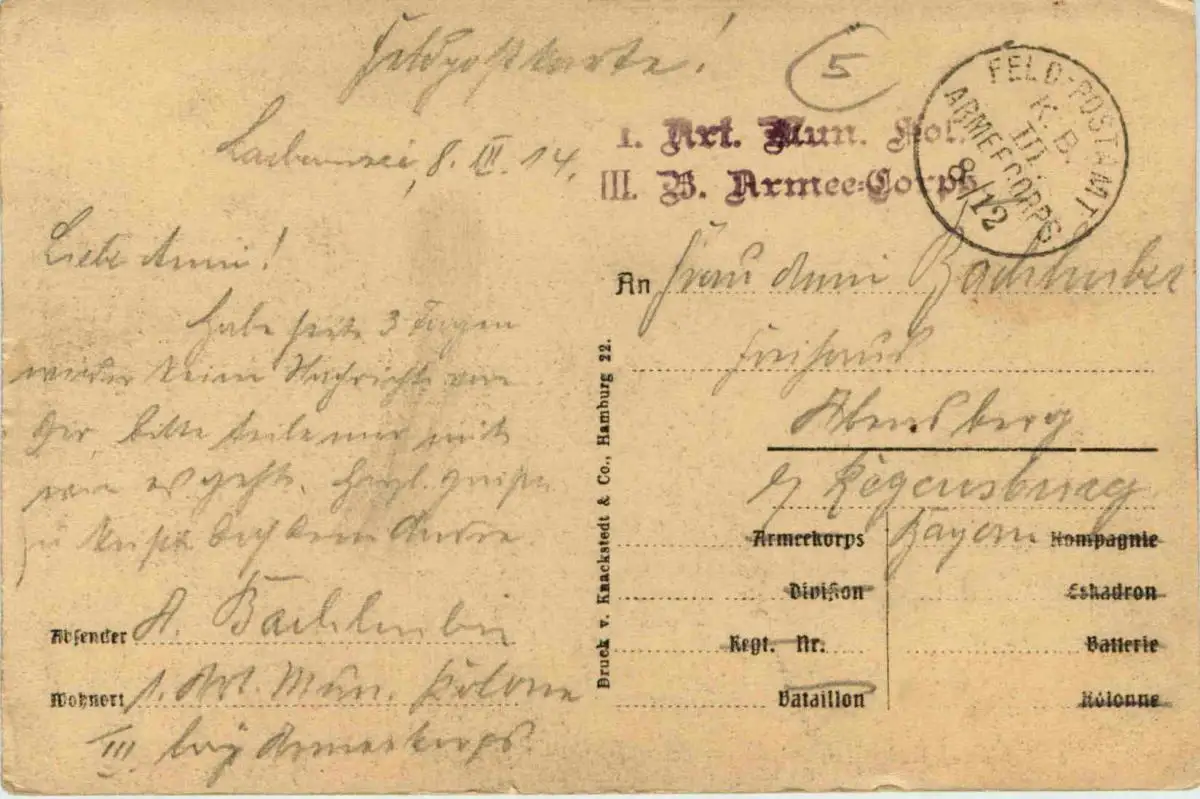 Feldpostkarte!
5
8. III. 14.
I. Art. Mun. Kol.
III. B. Armee-Corps
FELD-POSTAMT
K. B.
III.
ARMEECORPS
8/12
Liebe Anni!
Habe seit 3 Tagen
wieder keine Nachricht von
Dir, bitte teile mir mit
wie es geht. Herzl. Grüße
u Küsse
A. Bachhuber
Absender
Wohnort 1. Art. Mun. Kolone
III bay Armeekorps.
Druck v. Knackstedt & Co., Hamburg 22.
An Frau Anni Bachhuber
Abensberg
b/ Regensburg
Bayern
Armeekorps
Kompagnie
Division
Eskadron
Regt. Nr.
Batterie
Bataillon
Kolonne